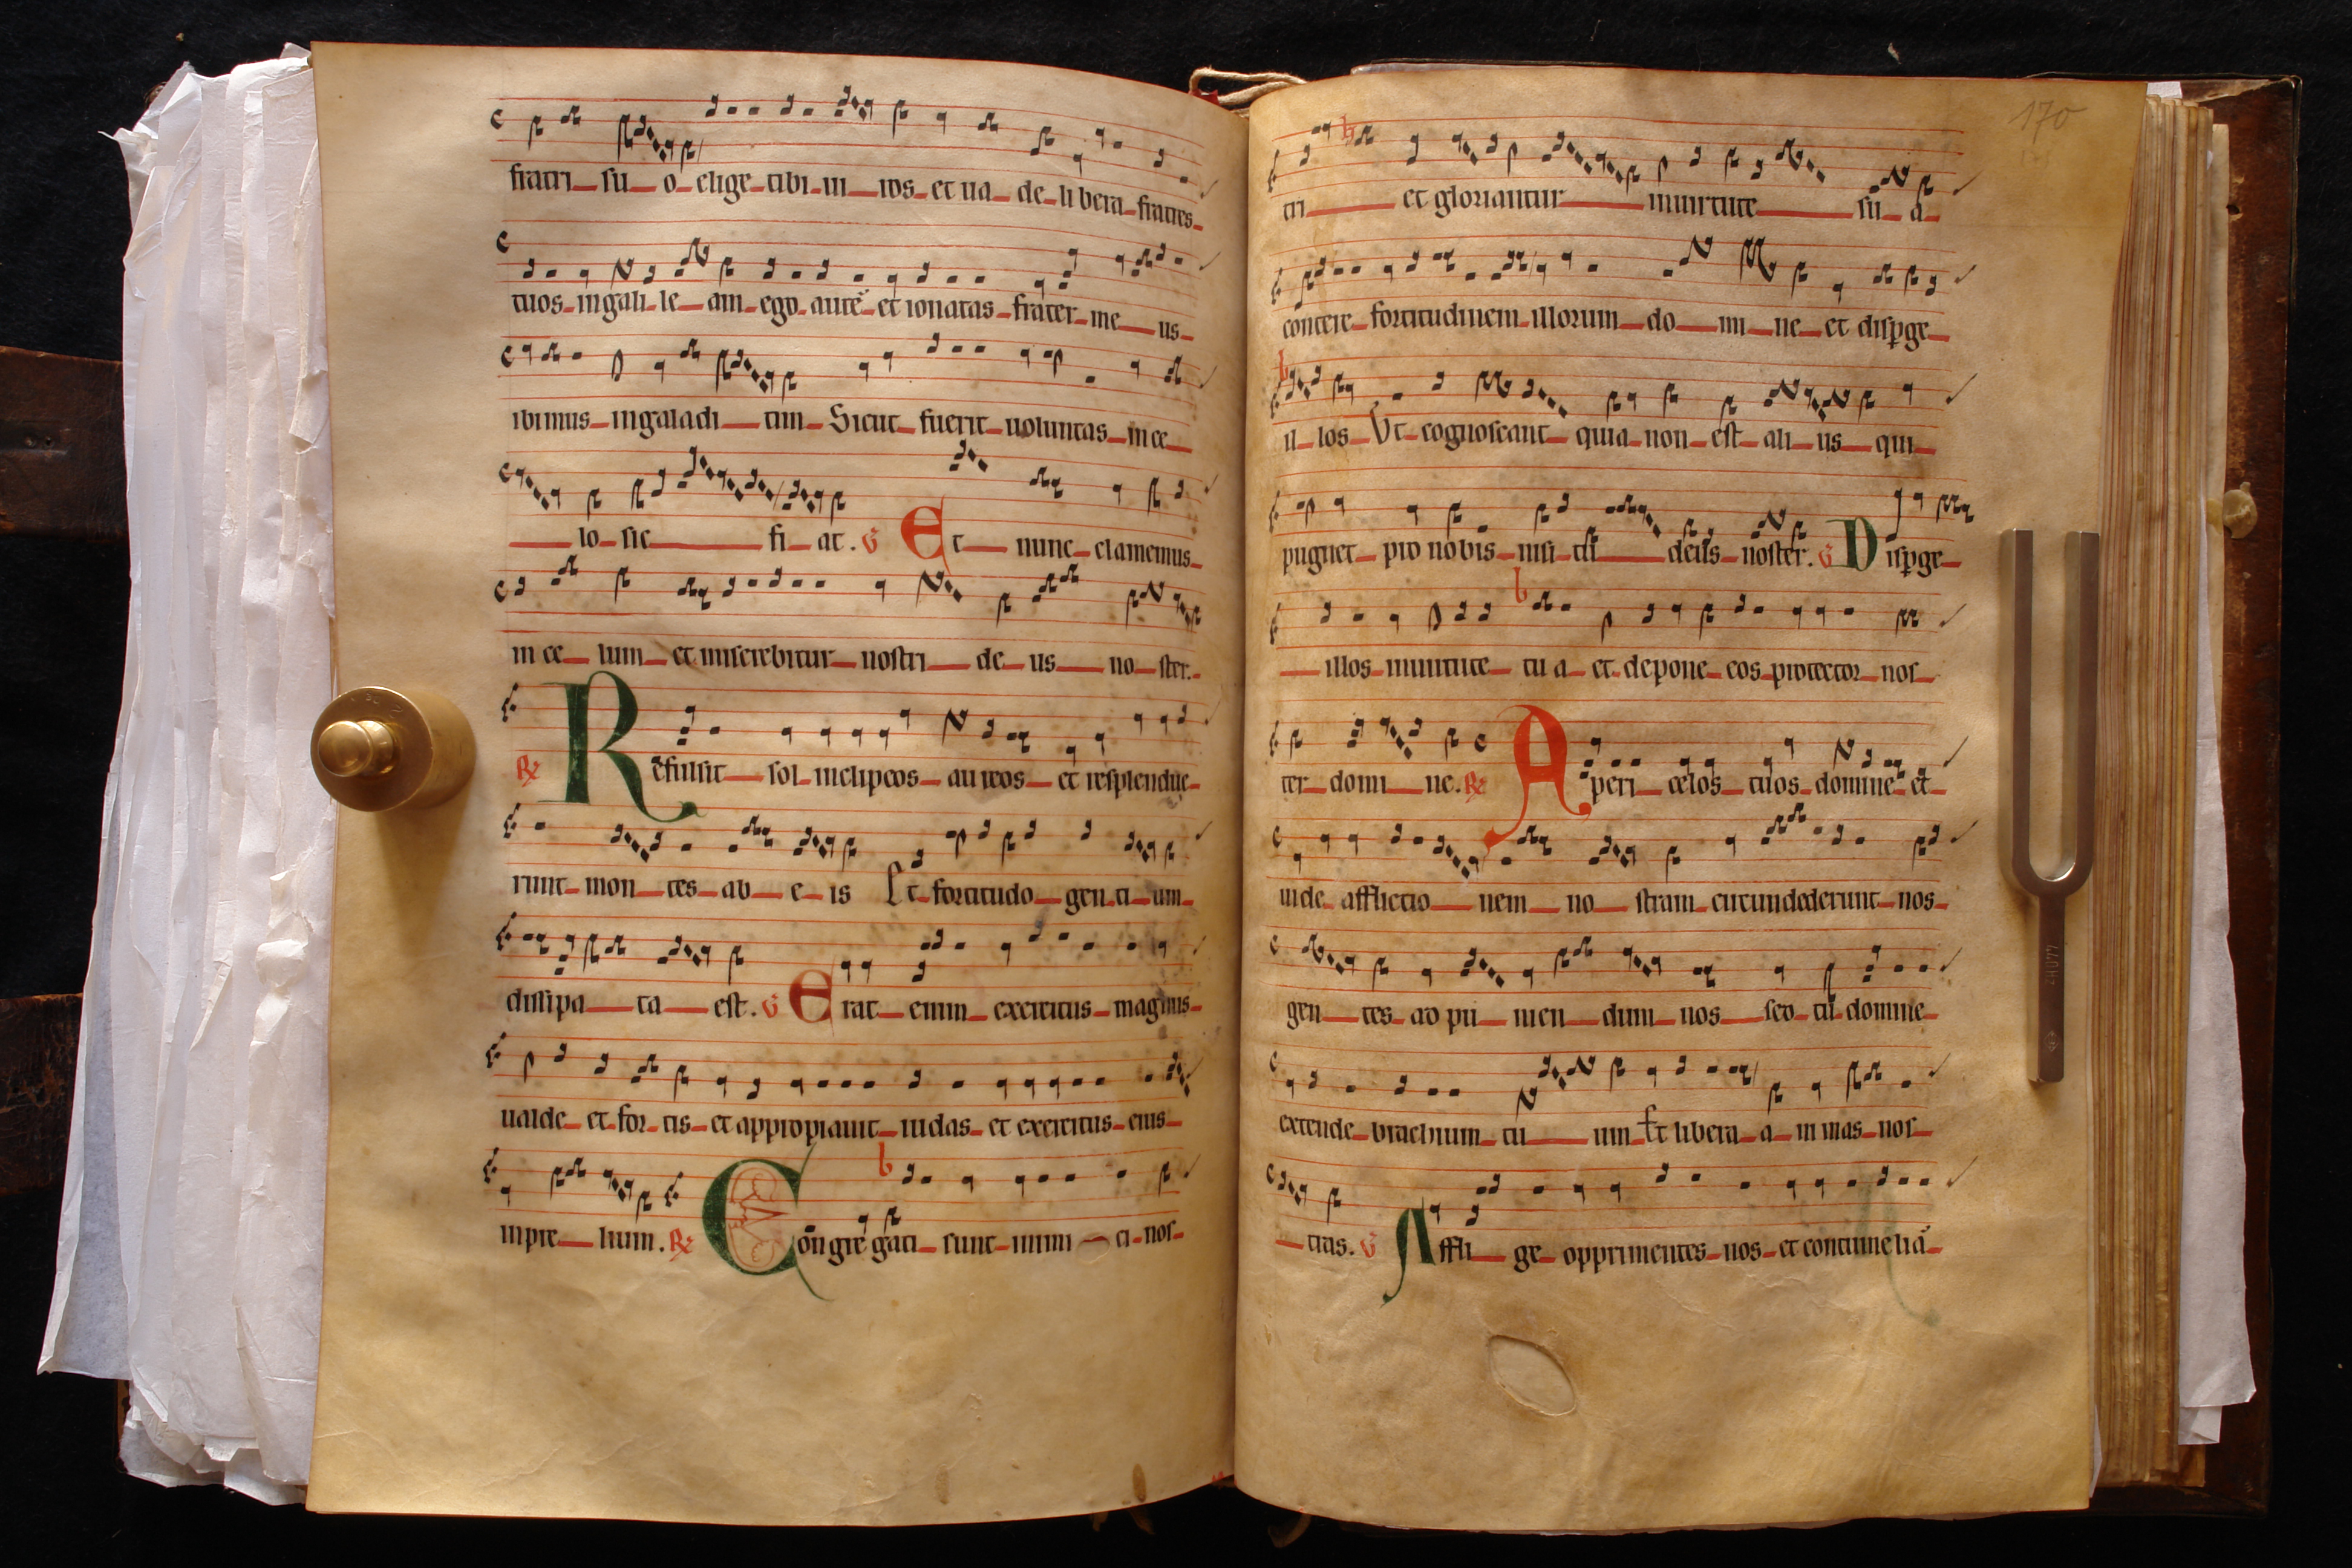 fratri su o elige tibi ui ros et ua de li bera fratres
tuos in gali le am ego autē et ionatas frater me us
ibimus in galadi tim Sicut fuerit uoluntas in ce
lo sic fi at. Et nunc clamemus
in ce lum et miserebitur nostri de us no ster.
Refulsit sol in clipeos aureos et resplendue
runt mon tes ab e is Et fortitudo gen ti um
dissipa ta est. Erat enim exercitus magnus
ualde et for tis et appropiauit iudas et exercitus eius
in pre lium. Congregati sunt inimi ci nos
170
tri et gloriantur in uirtute su a
contere fortitudinem illorum do mi ne et disꝑge
il los Ut cognoscant quia non est ali us qui
pugnet pro nobis nisi tu deus noster. Disꝑge
illos in uirtute tu a et depone eos protector nos
ter domi ne. Aperi celos tuos domine et
uide afflictio nem no stram circundederunt nos
gen tes ad pu nien dum nos sed tu domine
extende brachium tu um Et libera a nimas nos
tras. Affli ge opprimentes nos et contumeliā